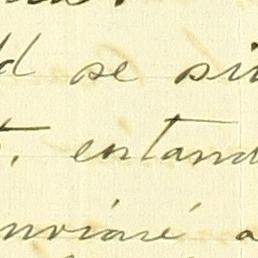 d se si
t, estand
nviaré a